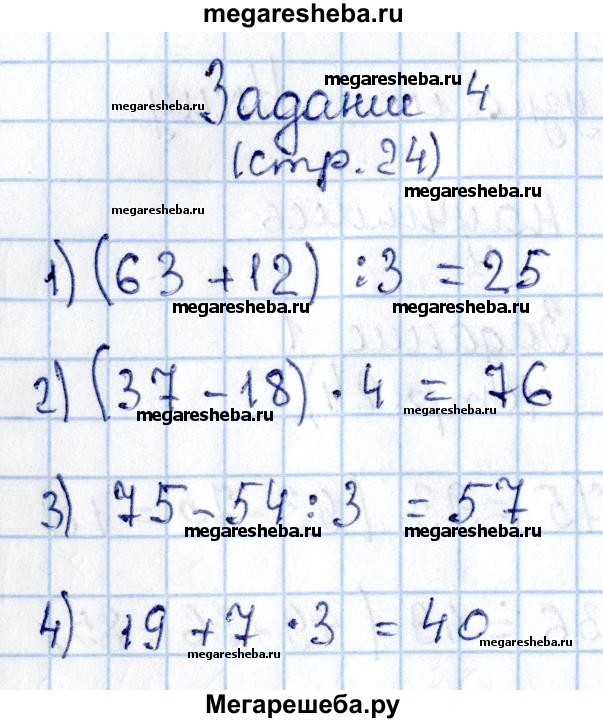 megaresheba.ru
Задание 4
megaresheba.ru
megaresheba.ru
(стр. 24)
megaresheba.ru
megaresheba.ru
1) (63 + 12) : 3 = 25
megaresheba.ru megaresheba.ru
2) (37 - 18) · 4 = 76
megaresheba.ru megaresheba.ru
3) 75 - 54 : 3 = 57
megaresheba.ru megaresheba.ru
4) 19 + 7 · 3 = 40
megaresheba.ru megaresheba.ru
Мегарешеба.ру